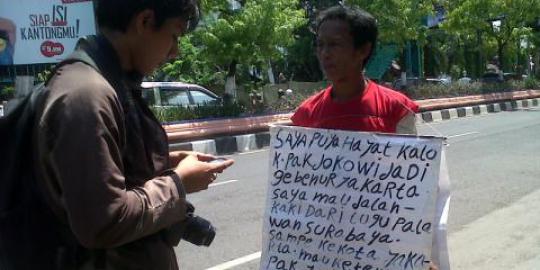 SIAP ISI
KANTONGMU!
SAYA PUYA HAYAT KALO
K.PAK JOKOWI JADI
gebenur JAKARTA
saya mau JALAN-
KAKI DARI TUGU PALA
WAN SUROBAYA.
SAMPE KE KOTA. JAKA-
RTA. MAU KETE
PAK